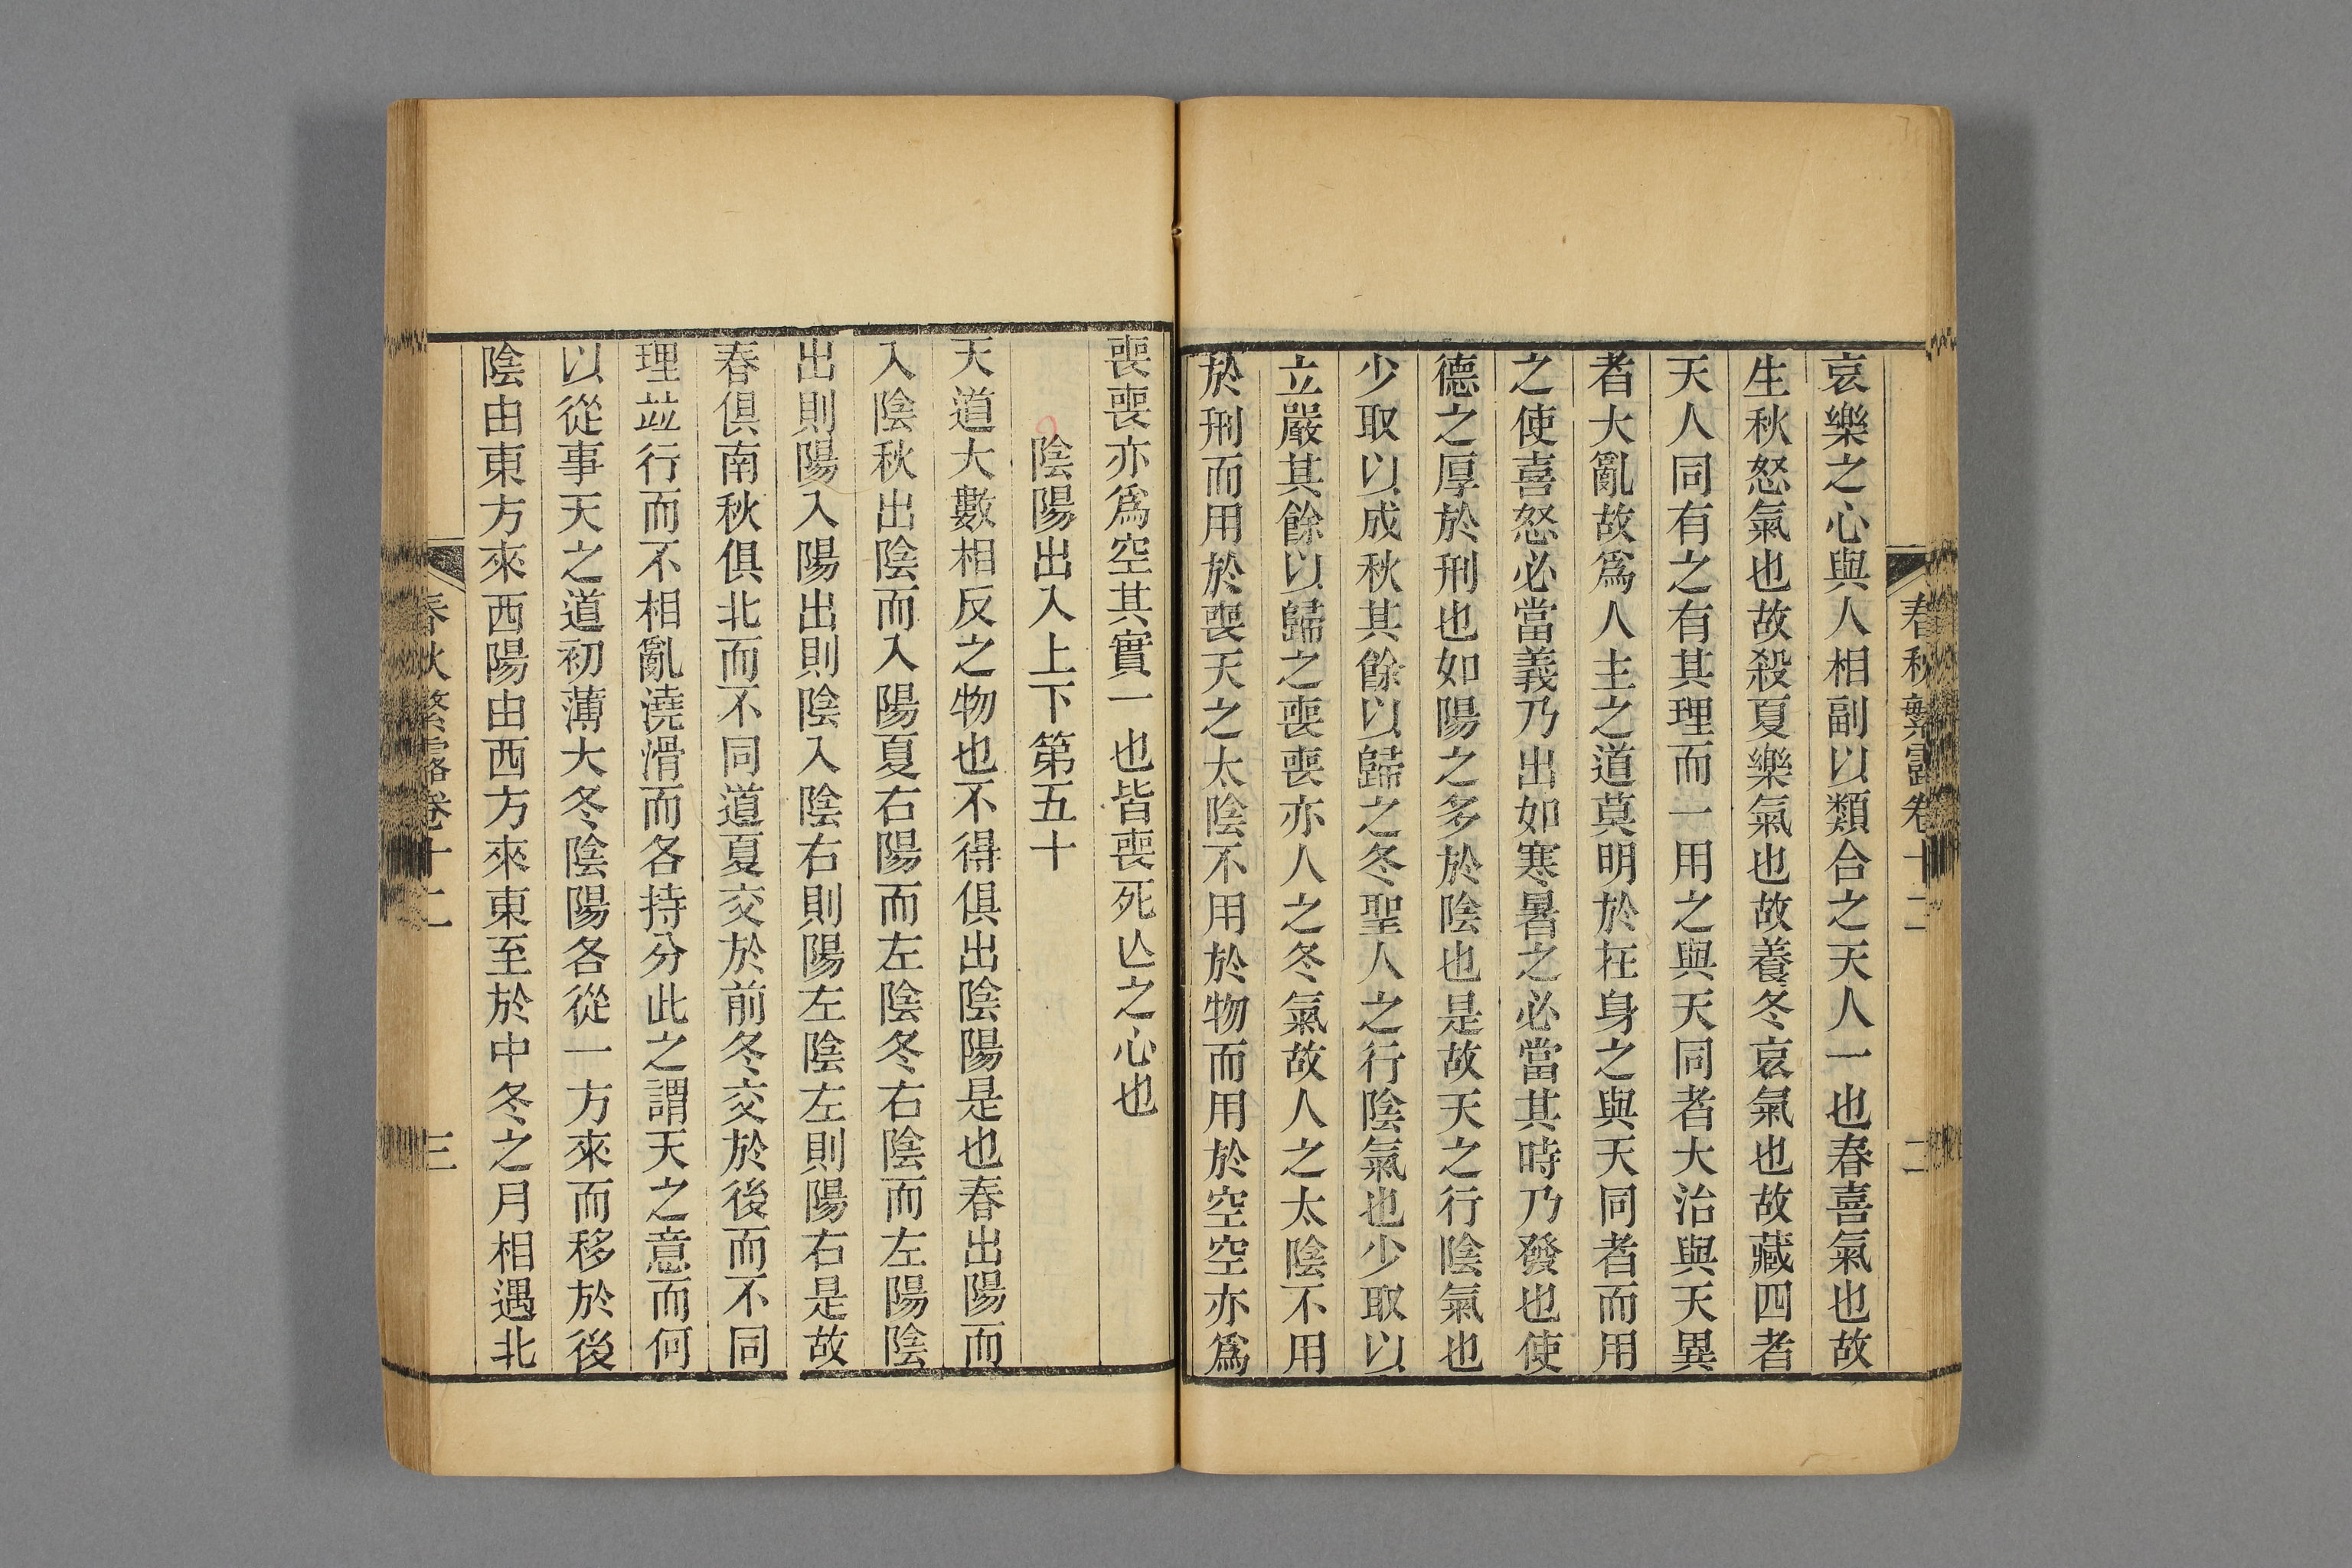 春秋繁露卷十二 二
哀樂之心與人相副以類合之天人一也春喜氣也故
生秋怒氣也故殺夏樂氣也故養冬哀氣也故藏四者
天人同有之有其理而一用之與天同者大治與天異
者大亂故爲人主之道莫明於在身之與天同者而用
之使喜怒必當義乃出如寒暑之必當其時乃發也使
德之厚於刑也如陽之多於陰也是故天之行陰氣也
少取以成秋其餘以歸之冬聖人之行陰氣也少取以
立嚴其餘以歸之喪喪亦人之冬氣故人之太陰不用
於刑而用於喪天之太陰不用於物而用於空空亦爲
喪喪亦爲空其實一也皆喪死亾之心也
陰陽出入上下第五十
天道大數相反之物也不得俱出陰陽是也春出陽而
入陰秋出陰而入陽夏右陽而左陰冬右陰而左陽陰
出則陽入陽出則陰入陰右則陽左陰左則陽右是故
春俱南秋俱北而不同道夏交於前冬交於後而不同
理竝行而不相亂澆滑而各持分此之謂天之意而何
以從事天之道初薄大冬陰陽各從一方來而移於後
陰由東方來西陽由西方來東至於中冬之月相遇北
春秋繁露卷十二 三